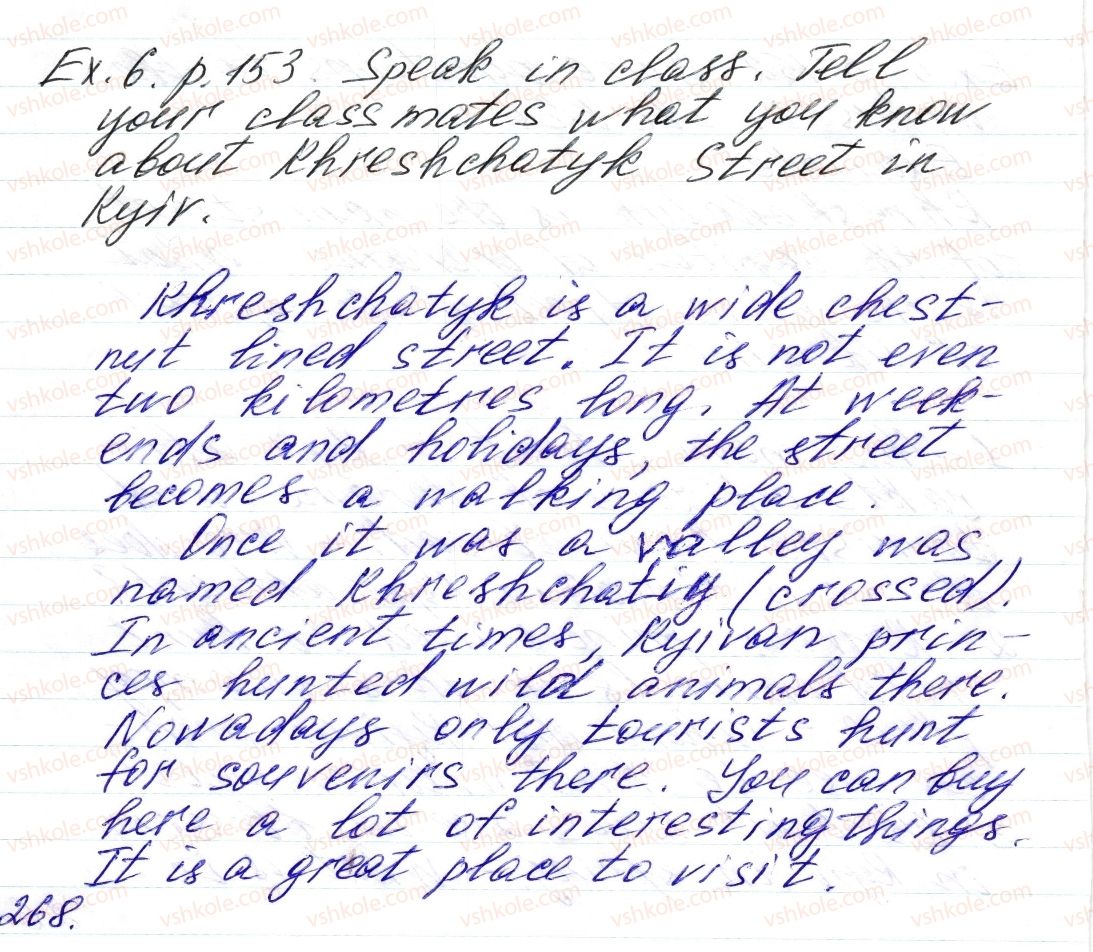 Ex. 6. p. 153. Speak in class. Tell
your classmates what you know
about Khreshchatyk Street in
Kyiv.
Khreshchatyk is a wide chest-
nut lined street. It is not even
two kilometres long. At week-
ends and holidays, the street
becomes a walking place.
Once it was a valley was
named Khreshchatiy (crossed).
In ancient times, Kyivan prin-
ces hunted wild animals there.
Nowadays only tourists hunt
for souvenirs there. You can buy
here a lot of interesting things.
It is a great place to visit.
268.
vshkole.com